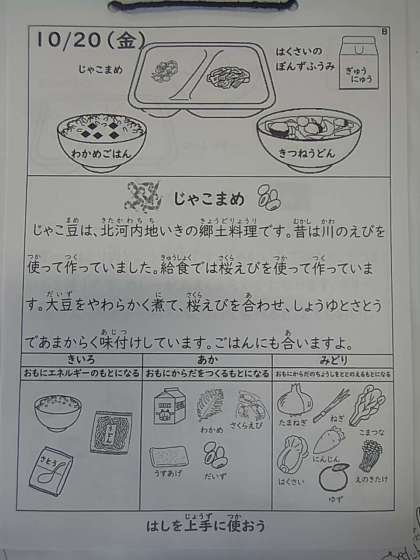 10/20(金)
B
じゃこまめ
はくさいの
ぽんずふうみ
ぎゅう
にゅう
わかめごはん
きつねうどん
じゃこまめ
じゃこ豆は、北河内地いきの郷土料理です。昔は川のえびを
使って作っていました。給食では桜えびを使って作っていま
す。大豆をやわらかく煮て、桜えびを合わせ、しょうゆとさとう
であまからく味付けしています。ごはんにも合いますよ。
きいろ
おもにエネルギーのもとになる
うどん
さとう
あか
おもにからだをつくるもとになる
わかめ
さくらえび
うすあげ
だいず
みどり
おもにからだのちょうしをととのえるもとになる
たまねぎ
ねぎ
こまつな
はくさい
にんじん
えのきたけ
ゆず
はしを上手に使おう